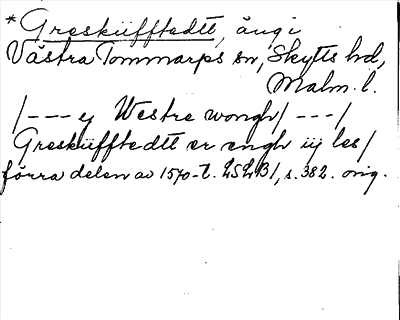 *Gresküfftedtt, äng i
Västra Tommarps sn, Skytts hd,
Malm. l.
/--- ej Westre wongh/ ---/
Gresküfftedtt er engh iij les/
förra delen av 1570-t. LSLB1, s. 382. orig.